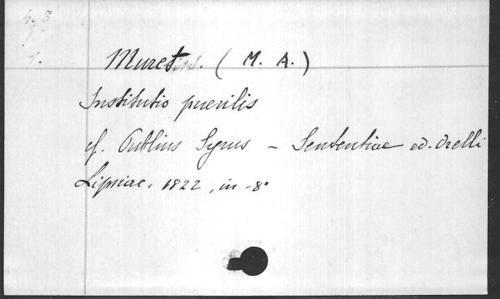 Muret. (M. A.)
Institutio puerilis
cf. Publius Syrus - Sententiae ed. Orelli
Lipsiae, 1822, in-8°